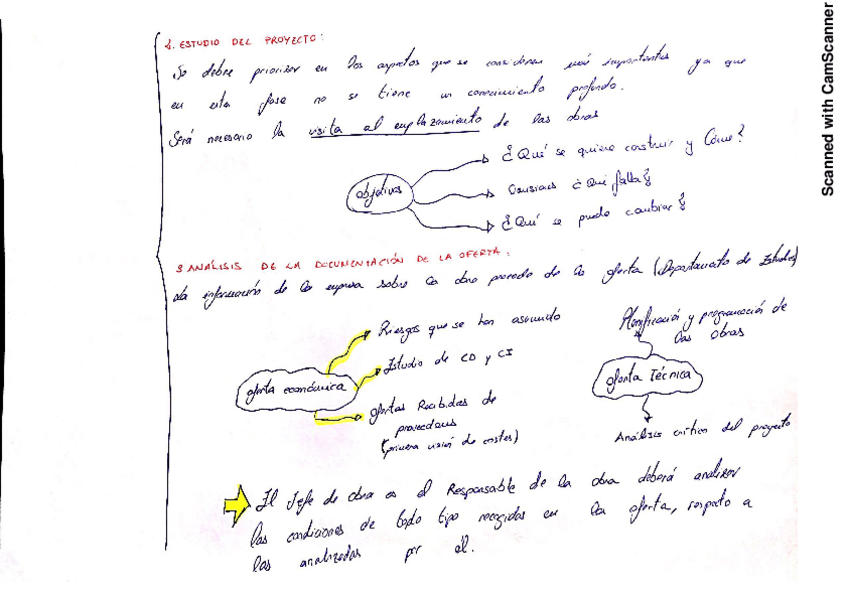 1. ESTUDIO DEL PROYECTO:
Se debe priorizar en los aspectos que se consideran más importantes ya que
en esta fase no se tiene un conocimiento profundo.
Será necesario la visita al emplazamiento de las obras
objetivos
¿Qué se quiere construir y Cómo?
¿Qué falta?
¿Qué se puede cambiar?
3 ANÁLISIS DE LA DOCUMENTACIÓN DE LA OFERTA:
La información de la empresa sobre la obra procede de la oferta (Departamento de Estudios)
oferta económica
Riesgos que se han asumido
Estudio de CD y CI
Ofertas Recibidas de
proveedores
(primera visión de costes)
Planificación y programación de
las obras
oferta Técnica
Análisis crítico del proyecto
El Jefe de obra es el Responsable de la obra deberá analizar
las condiciones de todo tipo recogidas en la oferta, respecto a
las analizadas por él.
Scanned with CamScanner